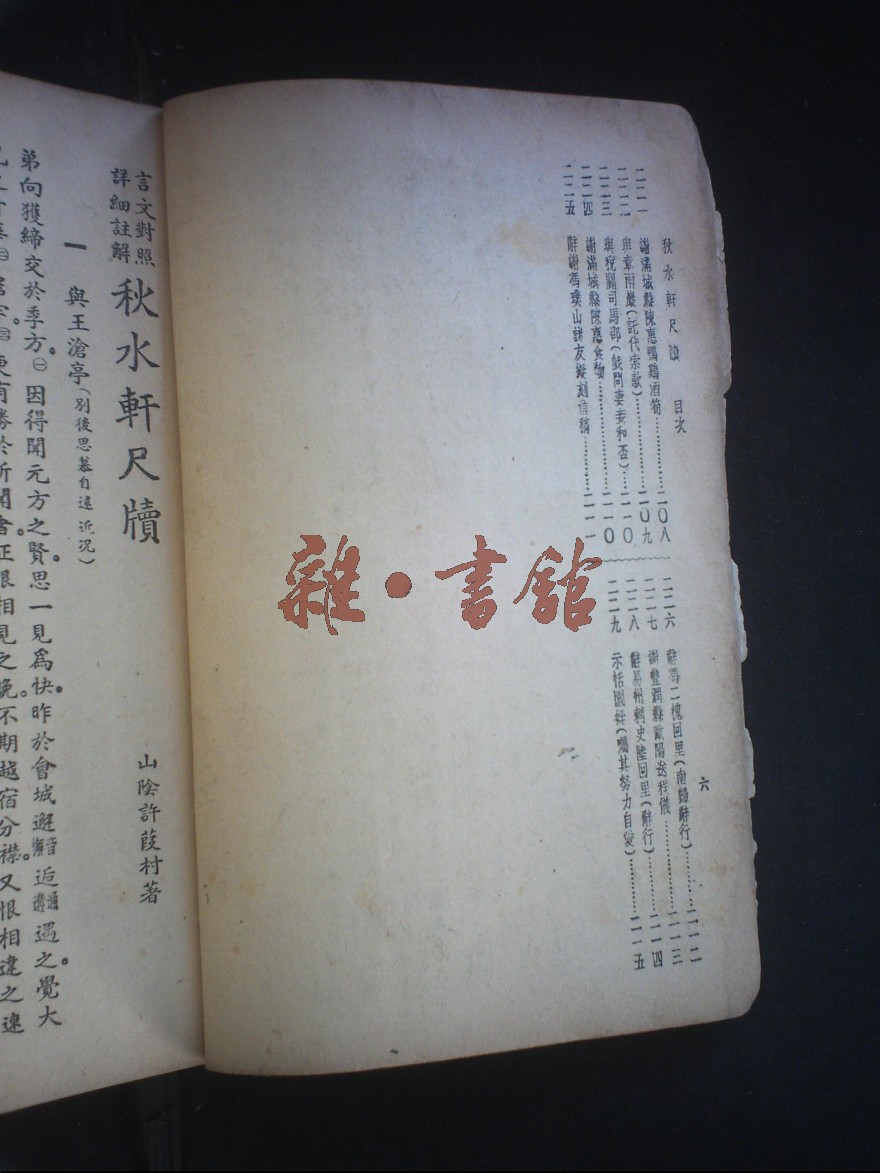 秋水軒尺牘　目次
六
二二一　謝滿城縣陳惠鴨鷄酒筍………二〇八
二二二　與章雨巖(託代宗款)………二〇九
二二三　與稅關司馬邵(戲問妻妾和否)………二一〇
二二四　謝滿城縣陳惠食物………二一〇
二二五　辭謝馮璞山諸友擬刻信稿………二一一
二二六　辭馮二槐回里(南歸辭行)………二一二
二二七　謝豐潤縣歐陽送程儀………二一三
二二八　辭易州刺史陸回里(辭行)………二一四
二二九　示恬園姪(囑其努力自愛)………二一五
雜·書館
言文對照
詳細註解
秋水軒尺牘
山陰許葭村著
一　與王滄亭(別後思慕自述近況)
弟向獲締交於季方。㊀因得聞元方之賢。思一見爲快。昨於會城邂音懈逅音遘遇之。覺大
更有勝於所聞者。正恨相見之晚。不期越宿分襟。又恨相違之速